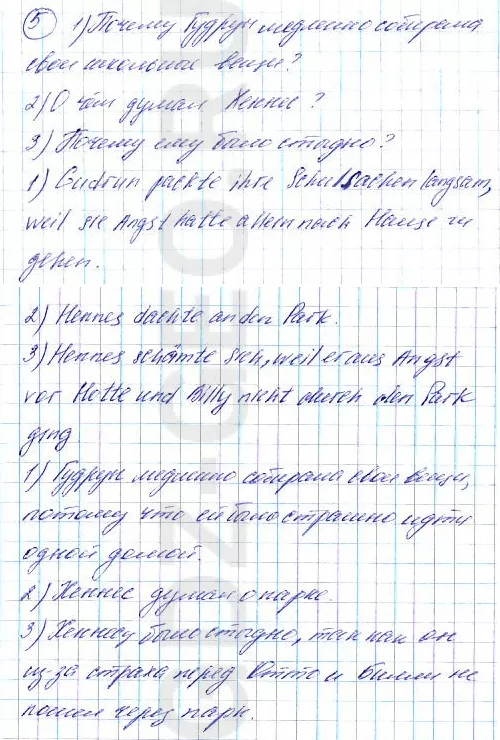 5 1) Почему Гудрун медленно собирала
свои школьные вещи?
2) О чём думал Хеннес?
3) Почему ему было стыдно?
1) Gudrun packte ihre Schulsachen langsam,
weil sie Angst hatte allein nach Hause zu
gehen.
2) Hennes dachte an den Park.
3) Hennes schämte sich, weil er aus Angst
vor Hotte und Billy nicht durch den Park
ging
1) Гудрун медленно собирала свои вещи,
потому что ей было страшно идти
одной домой.
2) Хеннес думал о парке.
3) Хеннесу было стыдно, так как он
из-за страха перед Отто и Билли не
пошел через парк.